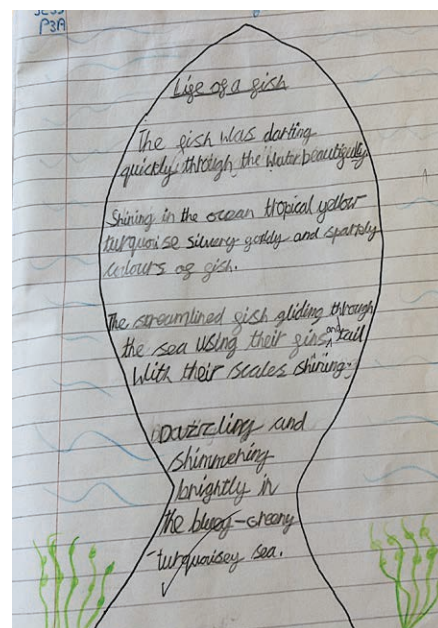 JESS
P3A
Life of a fish
The fish was darting
quickly through the water beautifully
Shining in the ocean tropical yellow
turquoise silvery goldy and sparkly
colours of fish.
The streamlined fish gliding through
the sea using their fins and tail
With their scales shining.
Dazzling and
shimmering
brightly in
the bluey-greeny
turquoisey sea.